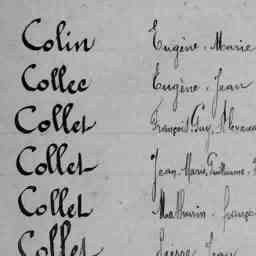 Colin Eugène Marie
Collec Eugène Jean
Collet François Guy, Alexan
Collet Jean Marie Guillaume
Collet Mathurin françoi
Collet Pierre Jean